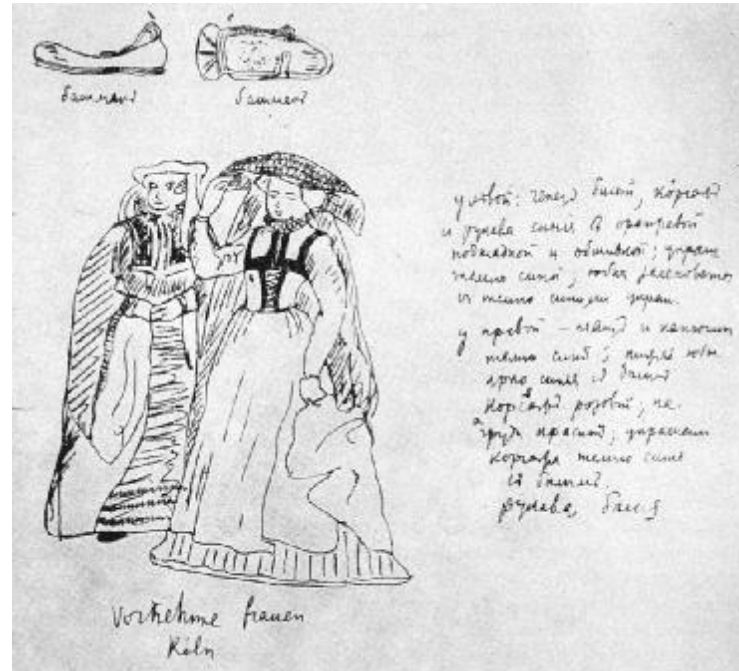 башмакъ
башмакъ
у лѣвой: чепецъ бѣлый, корсажъ
и рукава синіе съ оранжевой
подкладкой и обшивкой; украш
темно синей; юбка
съ темно синими украш.
у правой – плащъ и капюшонъ
темно синій; юбка
ярко синяя съ бѣлымъ
корсажъ розовый, на
груди красный; украшенія
корсажа темно синія
съ бѣлымъ.
рукава, бѣлыя
Vornehme frauen
Köln